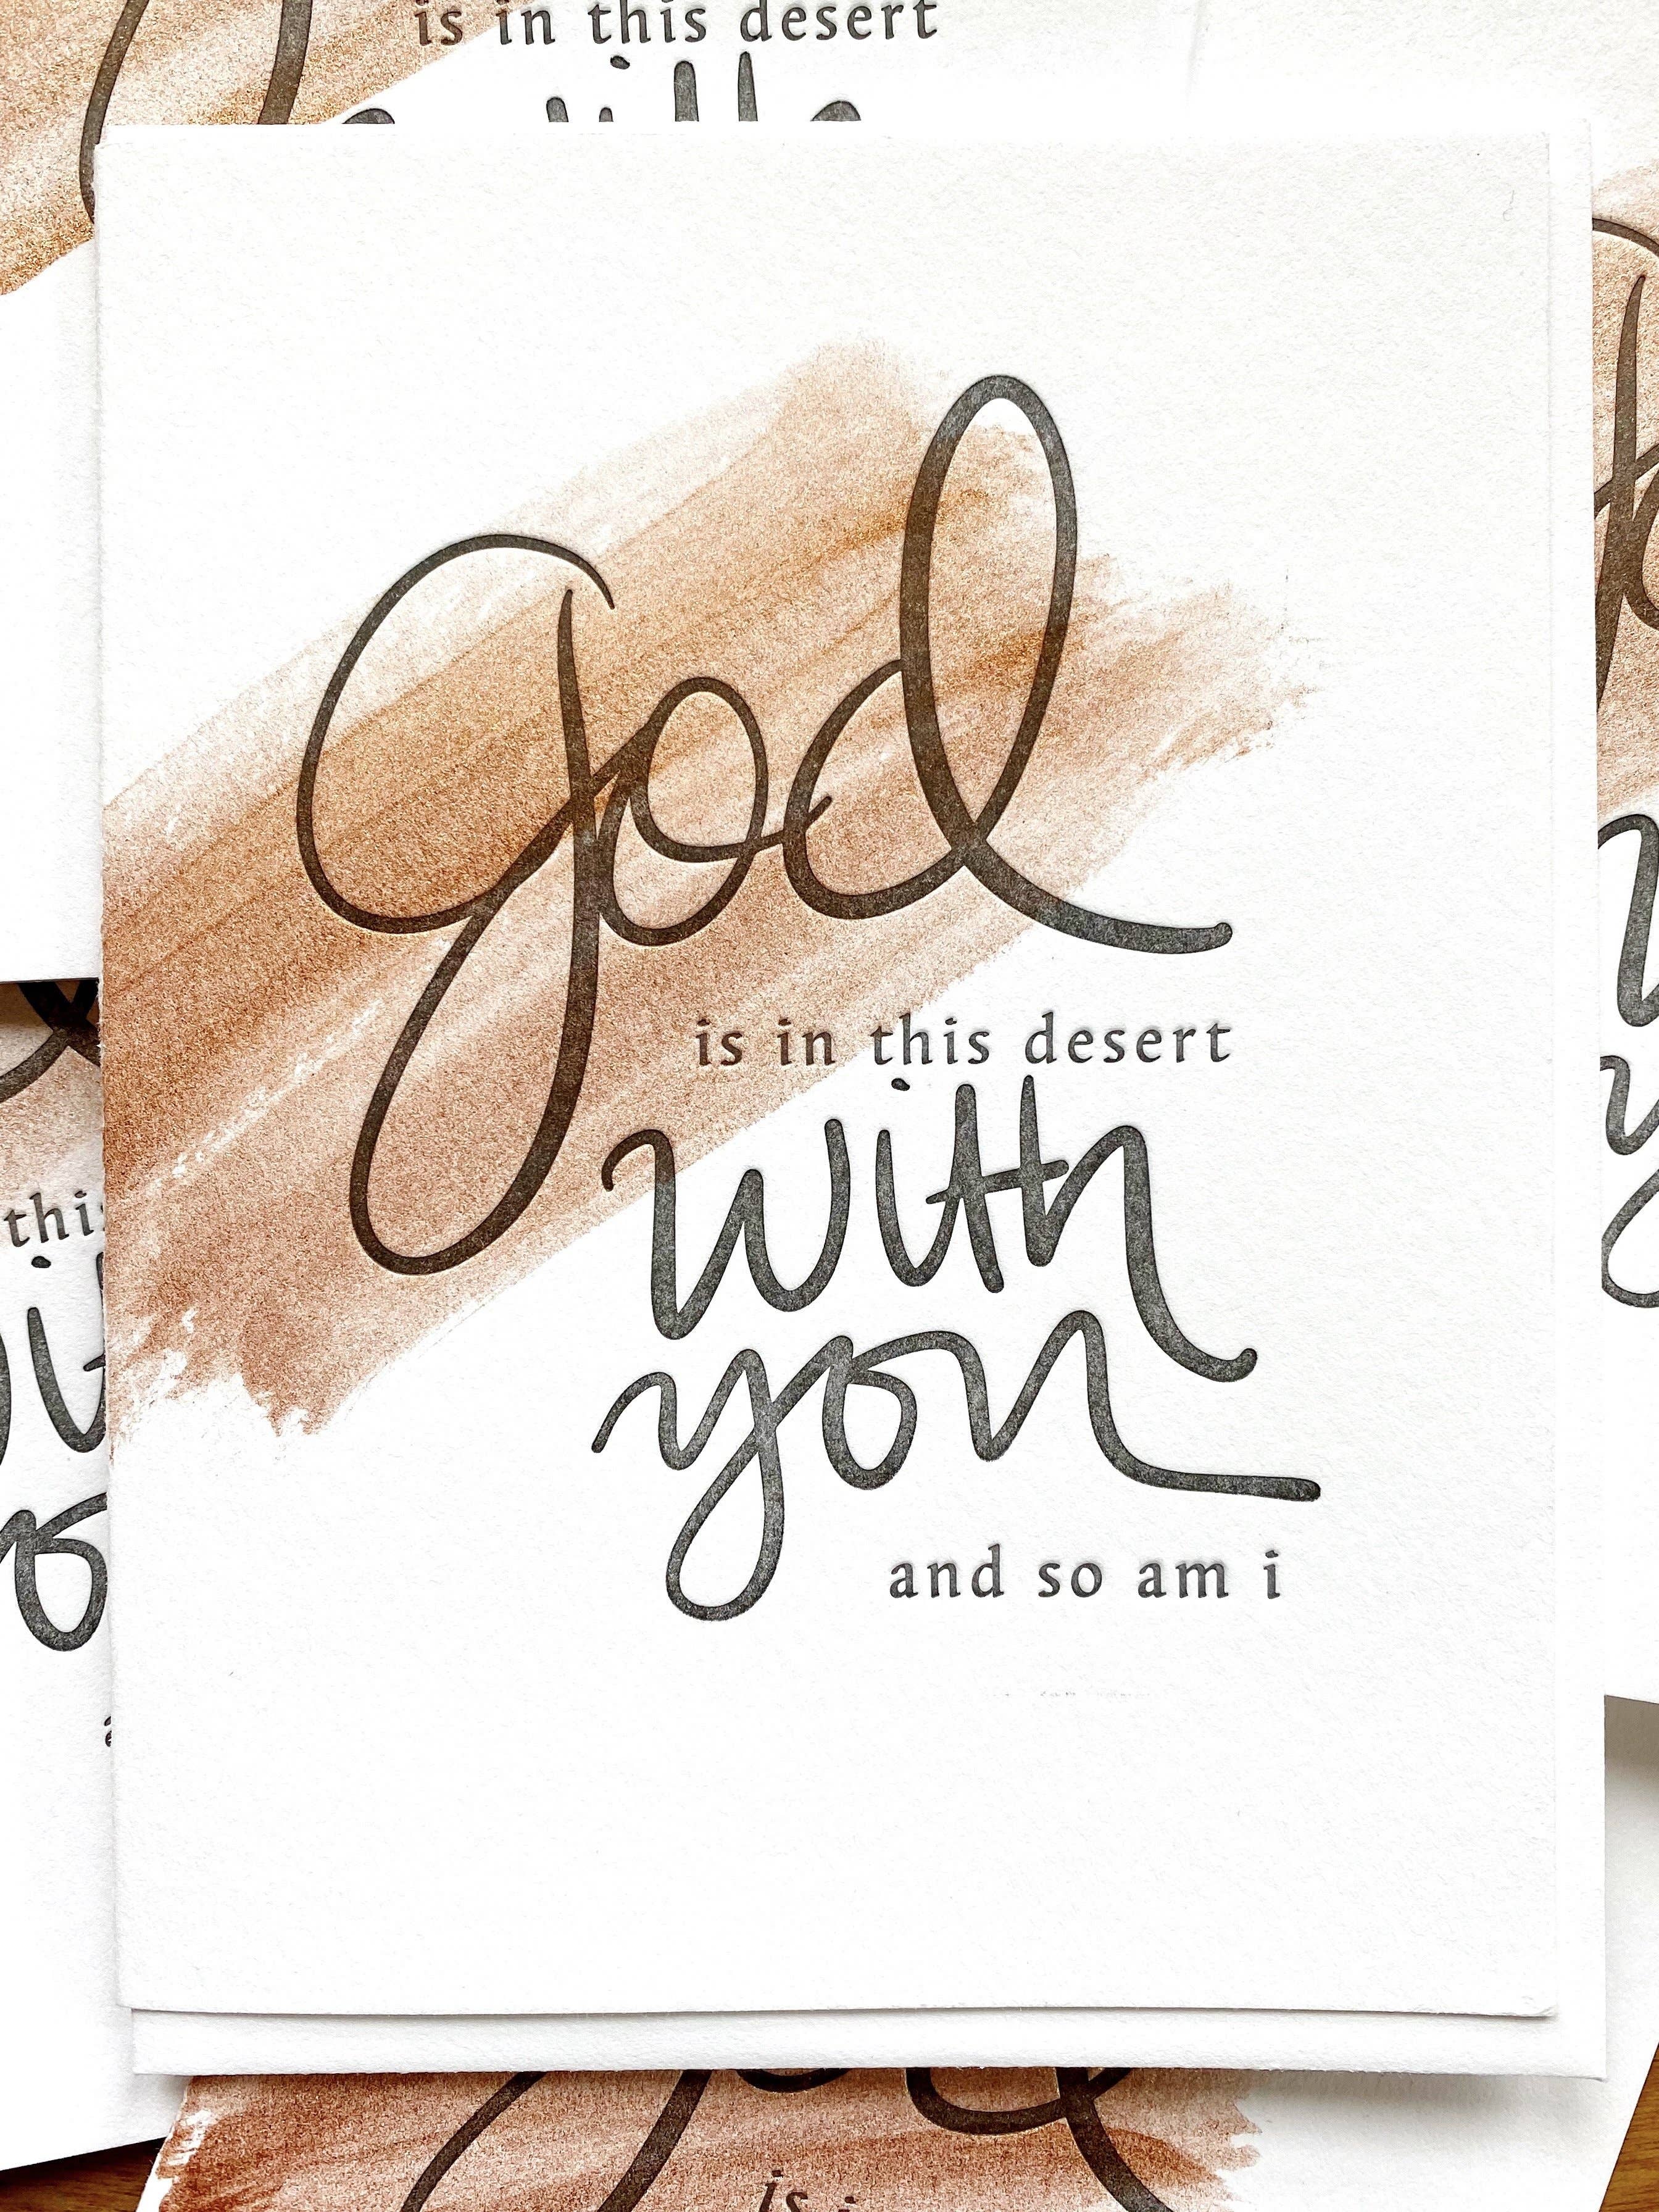 is in this desert
god
is in this desert
with
you
and so am i
this
is